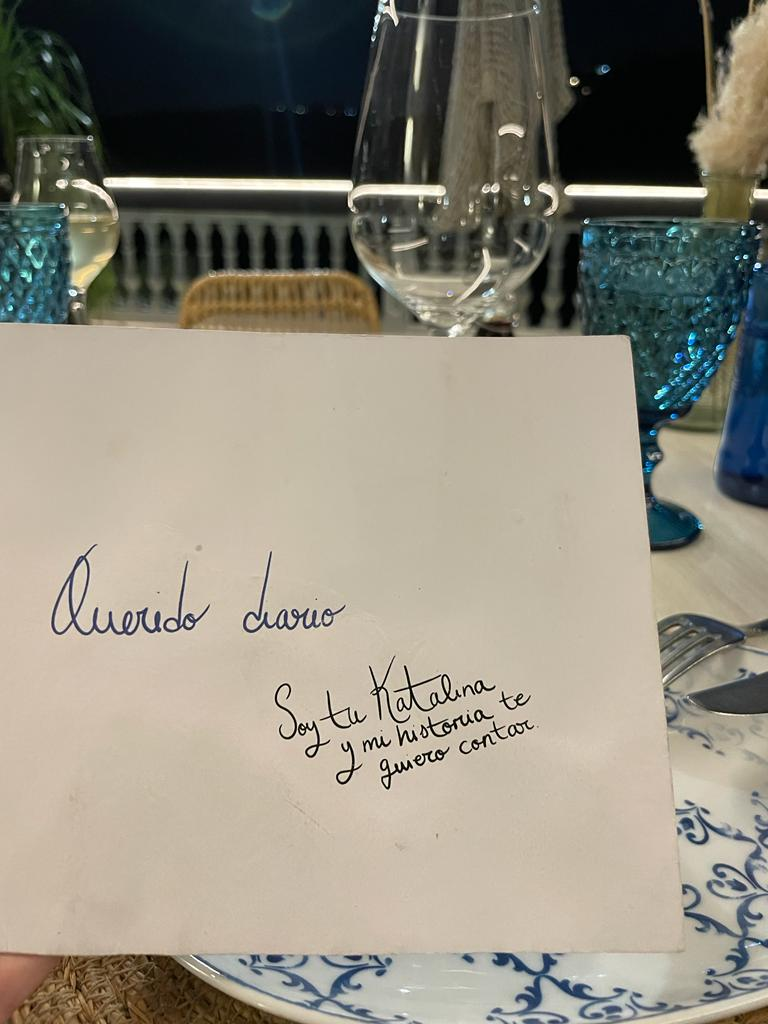 Querido diario
Soy tu Katalina
y mi historia te
quiero contar.